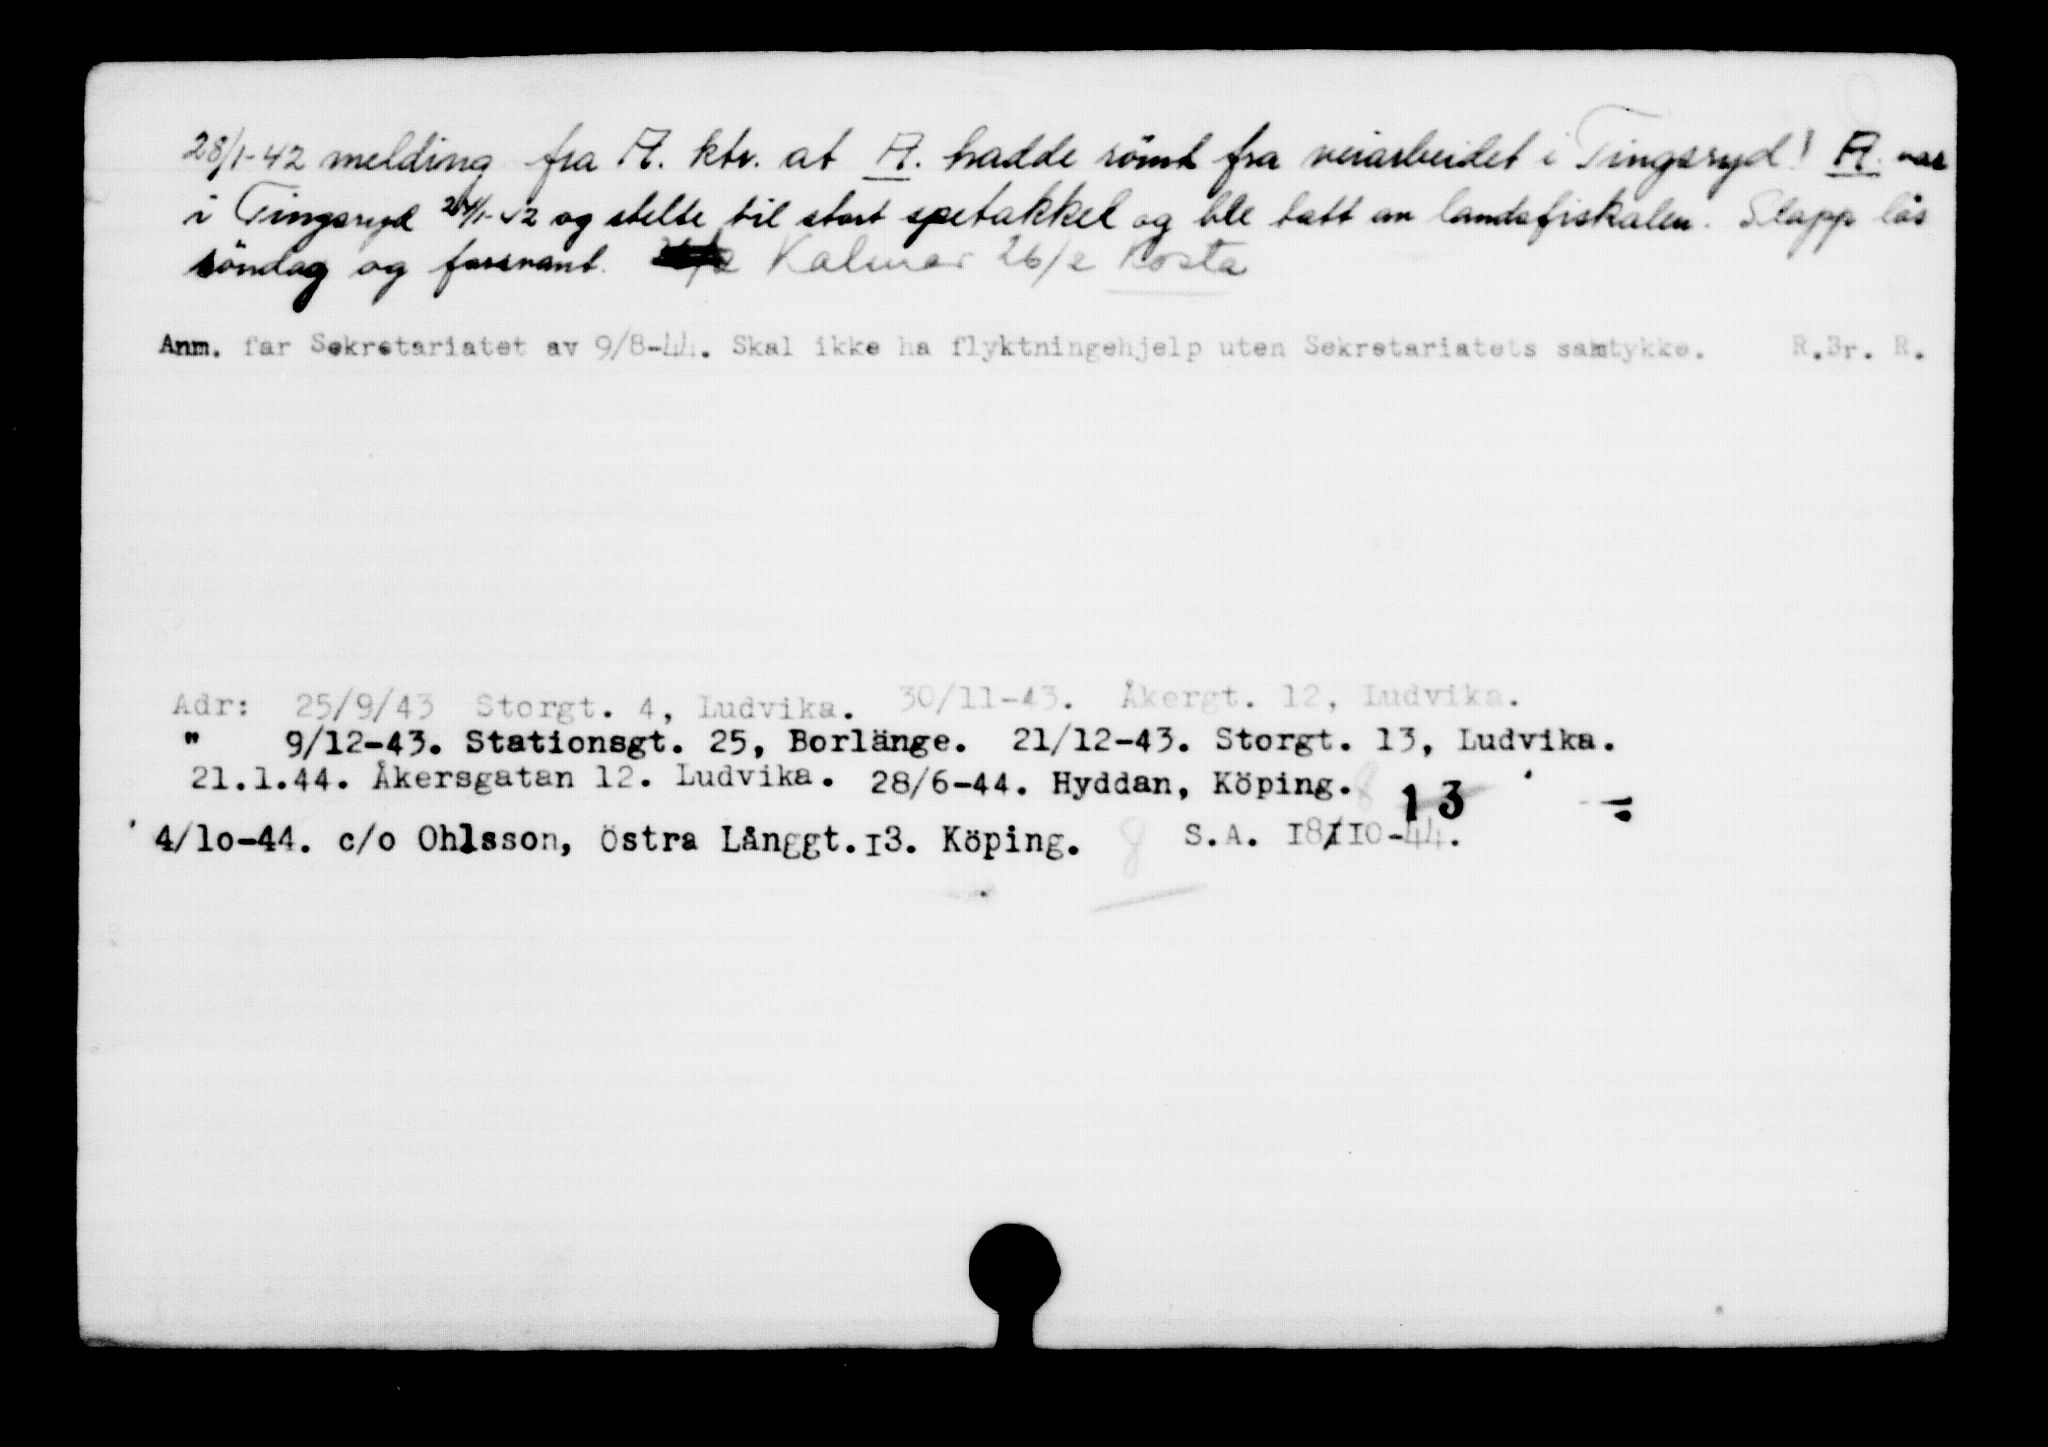 28/1-42 melding fra A. ktr. at A. hadde römt fra veiarbeidet i Tingsryd! A. var
i Tingsryd 24/1-42 og stelte til stort spetakkel og ble tatt av landsfiskalen. Slapp lös
söndag og forsvant. Kalmar 26/2 Kosta
Anm. far Sekretariatet av 9/8-44. Skal ikke ha flyktningehjelp uten Sekretariatets samtykke. R.Br. R.
Adr: 25/9/43 Storgt. 4, Ludvika. 30/11-43. Åkergt. 12, Ludvika.
" 9/12-43. Stationsgt. 25, Borlänge. 21/12-43. Storgt. 13, Ludvika.
21.1.44. Åkersgatan 12. Ludvika. 28/6-44. Hyddan, Köping. 8 13
4/10-44. c/o Ohlsson, Östra Långgt.13. Köping. 8 S.A. 18/10-44.